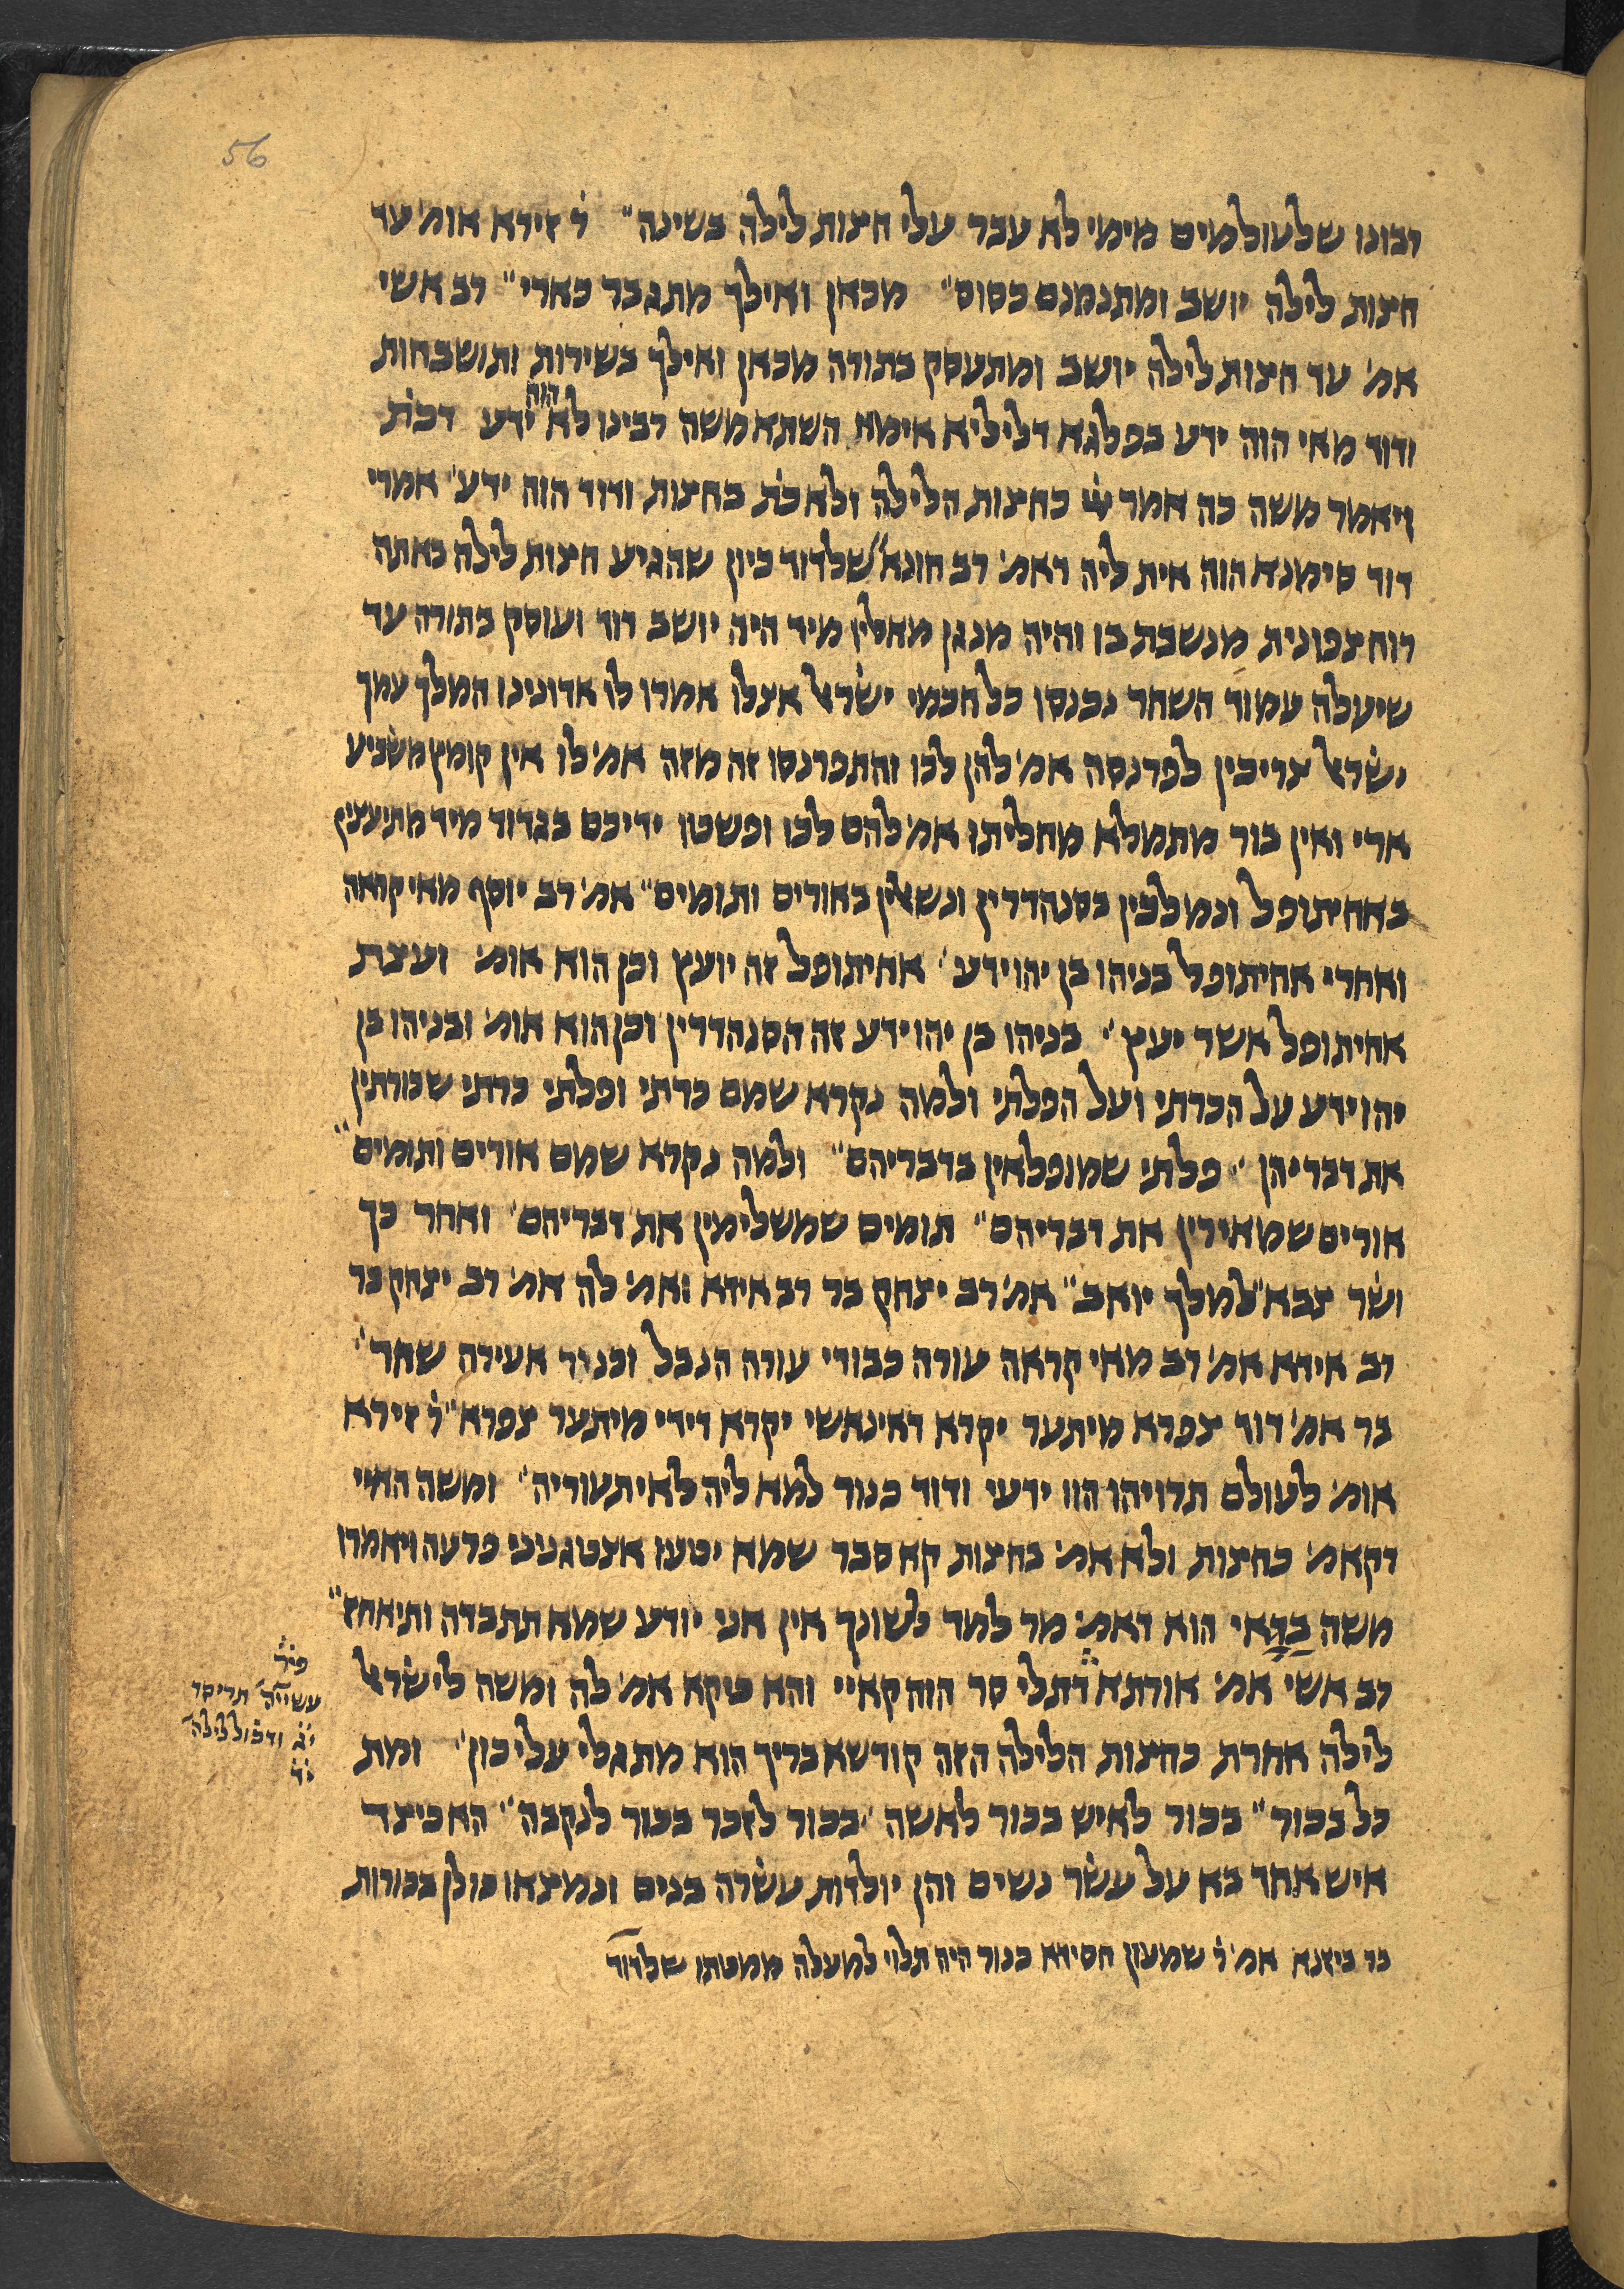 56
רבונו שלעולמים מימי לא עבר עלי חצות לילה בשינה״ ר׳ זירא אומ׳ עד
חצות לילה יושב ומתנמנם כסוס״ מכאן ואילך מתגבר כארי״ רב אשי
אמ׳ עד חצות לילה יושב ומתעסק בתורה מכאן ואילך בשירות ותושבחות
הוה
ודוד מאי הוה ידע בפלגא דליליא אימת השתא משה רבינו לא ידע דכת׳
ויאמר משה כה אמר כחצות הלילה ולא כת׳ בחצות ודוד הוה ידע׳ אמרי
דוד סימנא הוה אית ליה דאמ׳ רב חונא״ שלדוד כיון שהגיע חצות לילה באתה
רוח צפונית מנשבת בו והיה מנגן מאליו מיד היה יושב דוד ועוסק בתורה עד
שיעלה עמוד השחר נכנסו כל חכמי ישראל אצלו אמרו לו אדונינו המלך עמך
ישראל צריכין לפרנסה אמ׳ להן לכו והתפרנסו זה מזה אמ׳ לו אין קומץ משביע
ארי ואין בור מתמלא מחליתו אמ׳ להם לכו ופשטו ידיכם בגדוד מיד מתיעצין
באחיתופל ונמלכין בסנהדרין ונשאלין באורים ותומים״ אמ׳ רב יוסף מאי קראה
ואחרי אחיתופל בניהו בן יהוידע׳ אחיתופל זה יועץ וכן הוא אומ׳ ועצת
אחיתופל אשר יעץ׳ בניהו בן יהוידע זה הסנהדרין וכן הוא אומ׳ ובניהו בן
יהוידע על הכרתי ועל הפלתי ולמה נקרא שמם כרתי ופלתי כרתי שכורתין
את דבריהן״ פלתי שמופלאין בדבריהם״ ולמה נקרא שמם אורים ותומים״
אורים שמאירין את דבריהם״ תומים שמשלימין את דבריהם׳ ואחר כך
ושר צבא״ למלך יואב״ אמ׳ רב יצחק בר רב אידא ואמ׳ לה אמ׳ רב יצחק בר
רב אידא אמ׳ רב מאי קראה עורה כבודי עורה הנבל וכנור אעירה שחר׳
בר אמ׳ דוד צפרא מיתער יקרא דאינאשי יקרא דידי מיתער צפרא״ ר׳ זירא
אומ׳ לעולם תרויהו הוו ידעי ודוד כנור למא ליה לאיתעוריה״ ומשה האיי
דקאמ׳ כחצות ולא אמ׳ בחצות קא סבר שמא יטעו אצטגניני פרעה ויאמרו
משה בדאי הוא דאמ׳ מר למד לשונך אין אני יודע שמא תתבדה ותיאחז״
רב אשי אמ׳ אורתא דתלי סר הוה קאיי והא קא אמ׳ לה ומשה לישראל
לילה אחרת כחצות הלילה הזה קודשא בריך הוא מתגלי עליכון׳ ומת
כל בכור״ בכור לאיש בכור לאשה׳ בכור לזכר בכור לנקבה״ הא כיצד
איש אחד בא על עשר נשים והן יולדות עשרה בנים ונמצאו כולן בכורות
בר ביזנא אמ׳ ר׳ שמעון חסידא כנור היה תלוי למעלה ממטתו שלדוד
תריסר